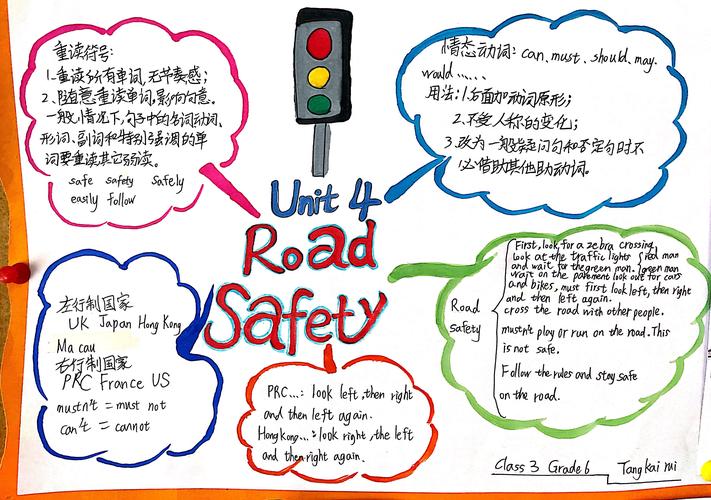 重读符号:
1.重读所有单词,无节奏感;
2、随意重读单词,影响句意。
一般情况下,句子中的名词动词、
形词、副词和特别强调的单
词要重读其它弱读。
safe safety safely
easily follow
情态动词: can, must, should, may.
would......
用法:1.后面加动词原形;
2.不受人称的变化;
3.改为一般疑问句和否定句时不
必借助其他助动词。
Unit 4
Road
Safety
左行制国家
UK Japan Hong Kong
Macau
右行制国家
PRC France US
mustn't = must not
can't = cannot
PRC...: look left, then right
and then left again.
Hong Kong...: look right, the left
and then right again.
Road
safety
First, look for a zebra crossing
look at the traffic lights { red man
and wait for the green man. { green man
wait on the pavement look out for cars
and bikes, must first look left, then right
and then left again.
cross the road with other people.
mustn't play or run on the road. This
is not safe.
Follow the rules and stay safe
on the road.
Class 3 Grade 6 Tang kai rui